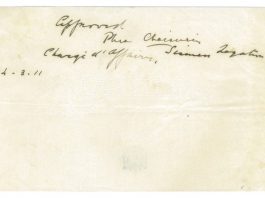 Approved
Phra Chaisurin
Chargé d'Affaires, Siamese Legation
4-3.11